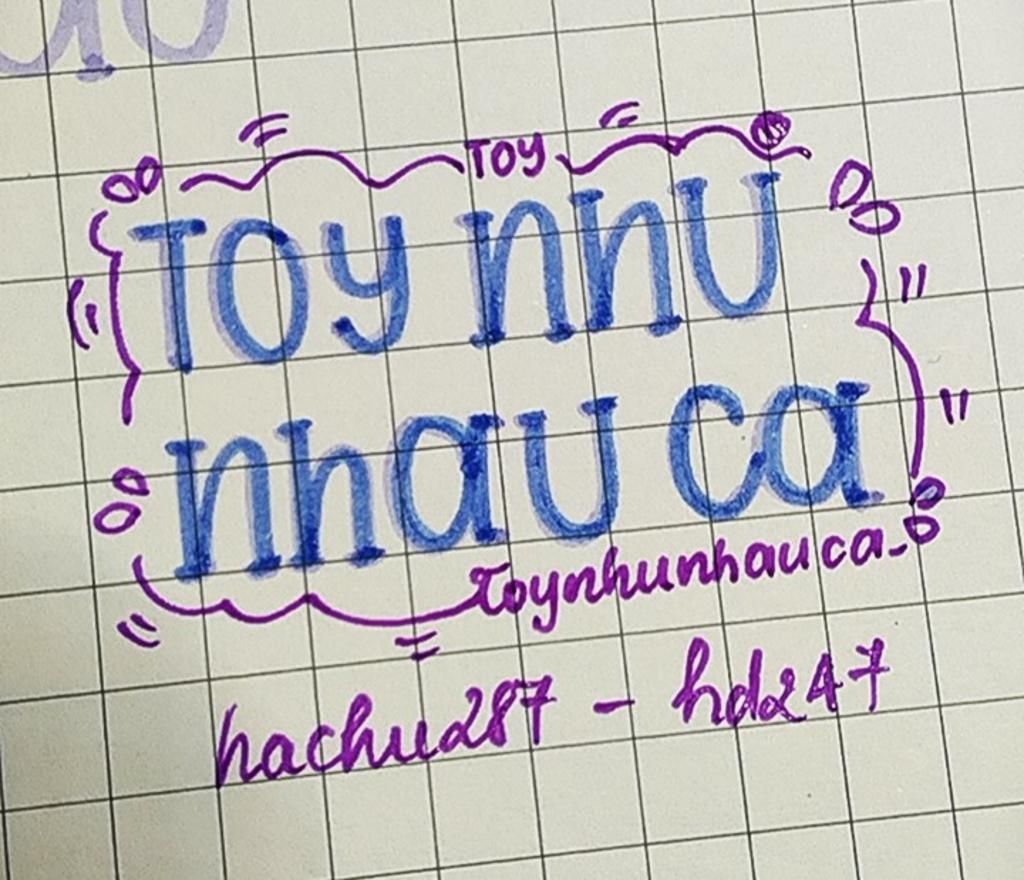 TOY
TOY nhU
nhaU ca
Toynhunhauca_
hachu287 - hd247